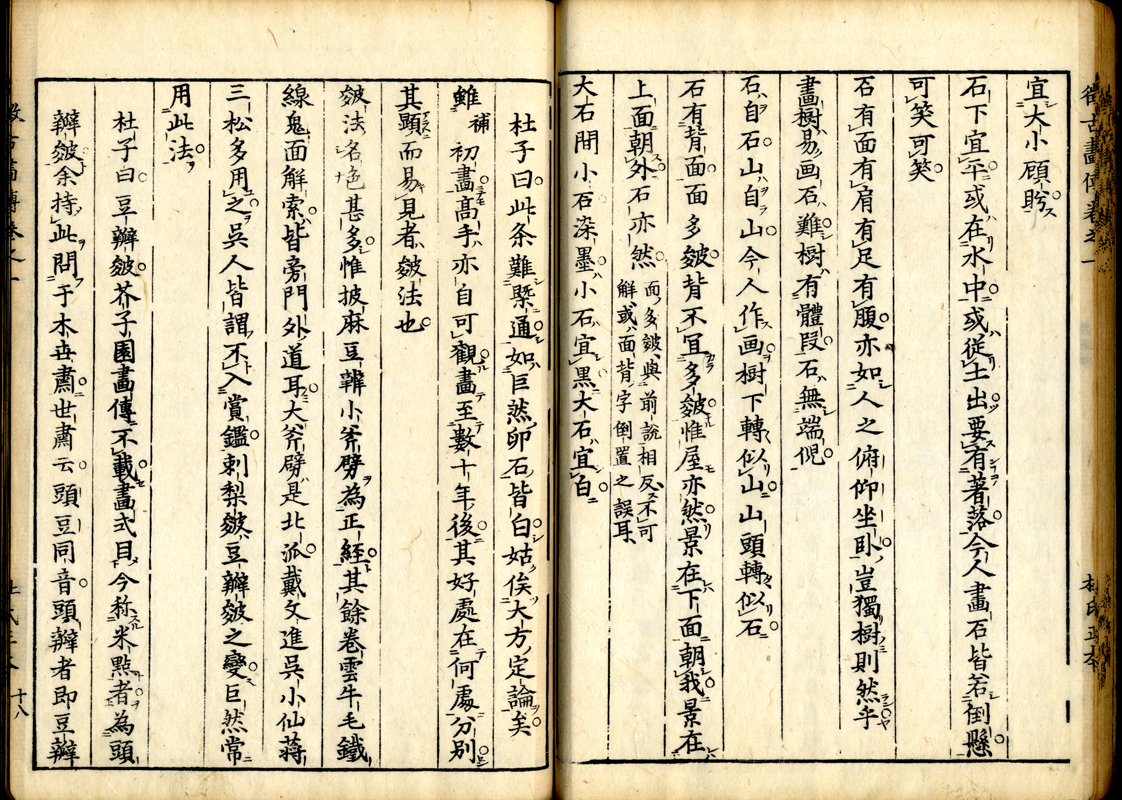 宜大小顧盻
石下宜平或在水中或従土出要有著落今人畫石皆若倒懸
可笑可笑
石有面有肩有足有腹亦如人之俯仰坐臥豈獨樹則然乎
畫樹易画石難樹有體段石無端倪
石自石山自山今人作画樹下轉似山山頭轉似石
石有背面面多皴背不宜多皴惟屋亦然景在下面朝我景在
上面朝外石亦然 面多皴與前說相反不可
解或面背字倒置之誤耳
大石間小石深墨小石宜黒大石宜白
杜子曰此条難槩通如巨然卵石皆白姑俟大方定論矣
雖補初畫高手亦自可觀畫至數十年後其好處在何處分別
其顯而易見者皴法也
皴法名色甚多惟披麻豆瓣小斧劈為正經其餘卷雲牛毛鐵
線鬼面解索皆旁門外道耳大斧劈是北派戴文進吳小仙蔣
三松多用之吳人皆謂不入賞鑑刺梨皴豆瓣皴之變巨然常
用此法
杜子曰豆瓣皴芥子園畫傳不載畫式目今称米點者為頭
瓣皴余持此問于木冉肅世肅云頭豆同音頭瓣者即豆瓣
杜氏正本
十八